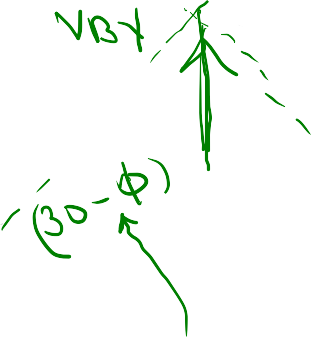 VBY
(30-ϕ)